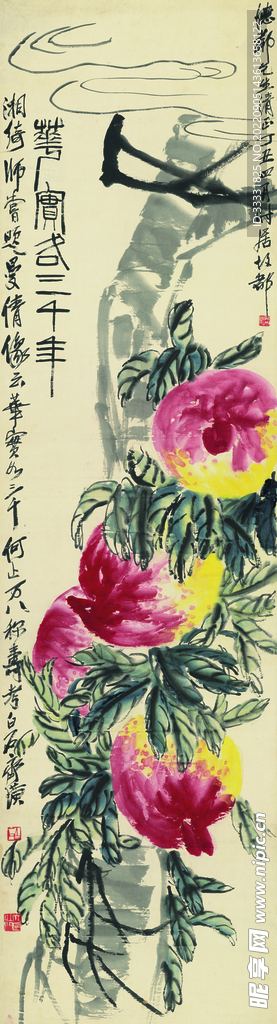 華實各三千年
湘綺師嘗題曼倩像云華實各三千何止万八稱壽考白石齊璜
先生清正丁丑四
居故都
ID:33331825,NO:20220905143613058122
昵享网 www.nipic.cn